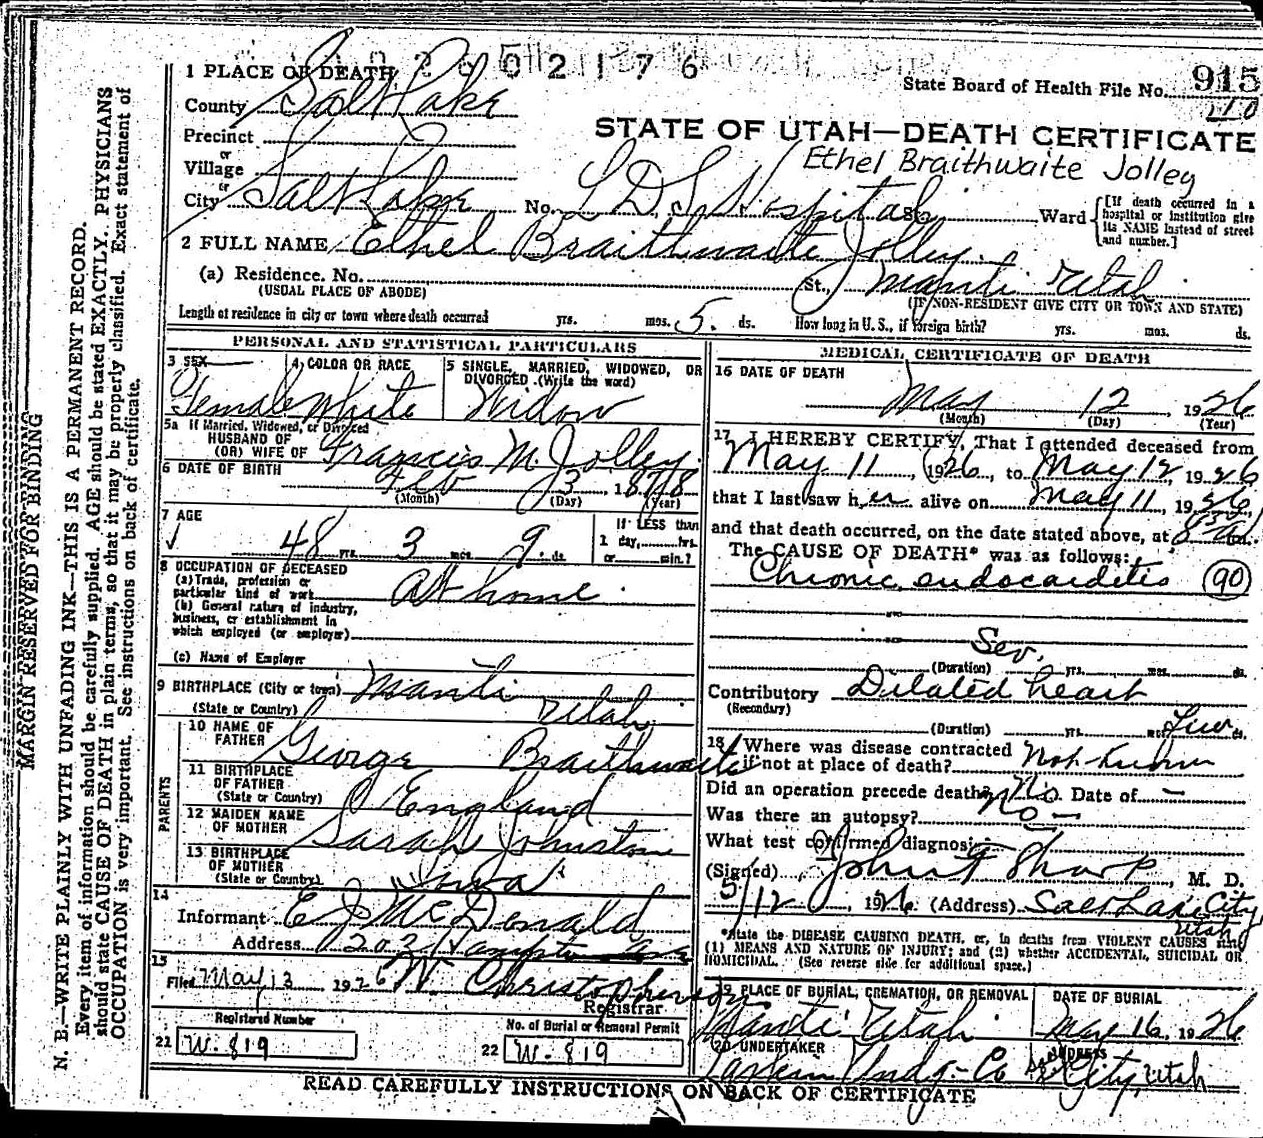 2 6 0 2 1 7 6
1 PLACE OF DEATH
State Board of Health File No. 915
110
County Salt Lake
STATE OF UTAH—DEATH CERTIFICATE
Precinct
Ethel Braithwaite Jolley
or
Village
or
City Salt Lake No. L D S Hospital St. Ward [If death occurred in a hospital or institution give its NAME instead of street and number.]
2 FULL NAME Ethel Braithwaite Jolley
(a) Residence. No. St. Manti Utah
(USUAL PLACE OF ABODE) (IF NON-RESIDENT GIVE CITY OR TOWN AND STATE)
Length of residence in city or town where death occurred yrs. mos. 5. ds. How long in U. S., if foreign birth? yrs. mos. ds.
PERSONAL AND STATISTICAL PARTICULARS
3 SEX 4 COLOR OR RACE 5 SINGLE, MARRIED, WIDOWED, OR DIVORCED (Write the word)
Female White Widow
5a If Married, Widowed, or Divorced
HUSBAND OF
(OR) WIFE OF Francis M Jolley
6 DATE OF BIRTH Feb 3, 1878
(Month) (Day) (Year)
7 AGE If LESS than
48 yrs. 3 mos. 9. ds. 1 day, hrs.
or min.?
8 OCCUPATION OF DECEASED
(a) Trade, profession or
particular kind of work At home
(b) General nature of industry,
business, or establishment in
which employed (or employer)
(c) Name of Employer
9 BIRTHPLACE (City or town) Manti
(State or Country) Utah
PARENTS
10 NAME OF
FATHER George Braithwaite
11 BIRTHPLACE
OF FATHER
(State or Country) England
12 MAIDEN NAME
OF MOTHER Sarah Johnston
13 BIRTHPLACE
OF MOTHER
(State or Country) Iowa
14
Informant E J McDonald
Address 202 Hampton Ave
15
Filed May 13 1926 W. Christopherson
Registrar
Registered Number No. of Burial or Removal Permit
22 W. 819 22 W. 819
MEDICAL CERTIFICATE OF DEATH
16 DATE OF DEATH
May 12, 1926
(Month) (Day) (Year)
17 I HEREBY CERTIFY, That I attended deceased from
May 11, 1926, to May 12, 1926
that I last saw her alive on May 11, 1926,
and that death occurred, on the date stated above, at
The CAUSE OF DEATH* was as follows:
Chronic endocarditis (90)
Sev.
(Duration) yrs. mos. ds.
Contributory Dilated heart
(Secondary)
(Duration) yrs. mos. Few ds.
18 Where was disease contracted
if not at place of death? Not known
Did an operation precede death? No. Date of —
Was there an autopsy? No —
What test confirmed diagnosis
(Signed) John F Sharp, M. D.
5/12, 1926 (Address) Salt Lake City, Utah
*State the DISEASE CAUSING DEATH, or, in deaths from VIOLENT CAUSES state
(1) MEANS AND NATURE OF INJURY; and (2) whether ACCIDENTAL, SUICIDAL OR
HOMICIDAL. (See reverse side for additional space.)
19 PLACE OF BURIAL, CREMATION, OR REMOVAL DATE OF BURIAL
Manti Utah May 16, 1926
20 UNDERTAKER ADDRESS
Larkin Undg. Co City, Utah
READ CAREFULLY INSTRUCTIONS ON BACK OF CERTIFICATE
MARGIN RESERVED FOR BINDING
N. B.—WRITE PLAINLY WITH UNFADING INK—THIS IS A PERMANENT RECORD.
Every item of information should be carefully supplied. AGE should be stated EXACTLY. PHYSICIANS
should state CAUSE OF DEATH in plain terms, so that it may be properly classified. Exact statement of
OCCUPATION is very important. See instructions on back of certificate.